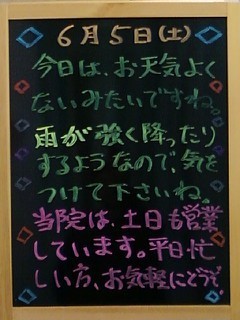 6月5日(土)
今日は、お天気よく
ないみたいですね。
雨が強く降ったり
するようなので、気を
つけて下さいね。
当院は、土日も営業
しています。平日忙
しい方、お気軽にどうぞ!